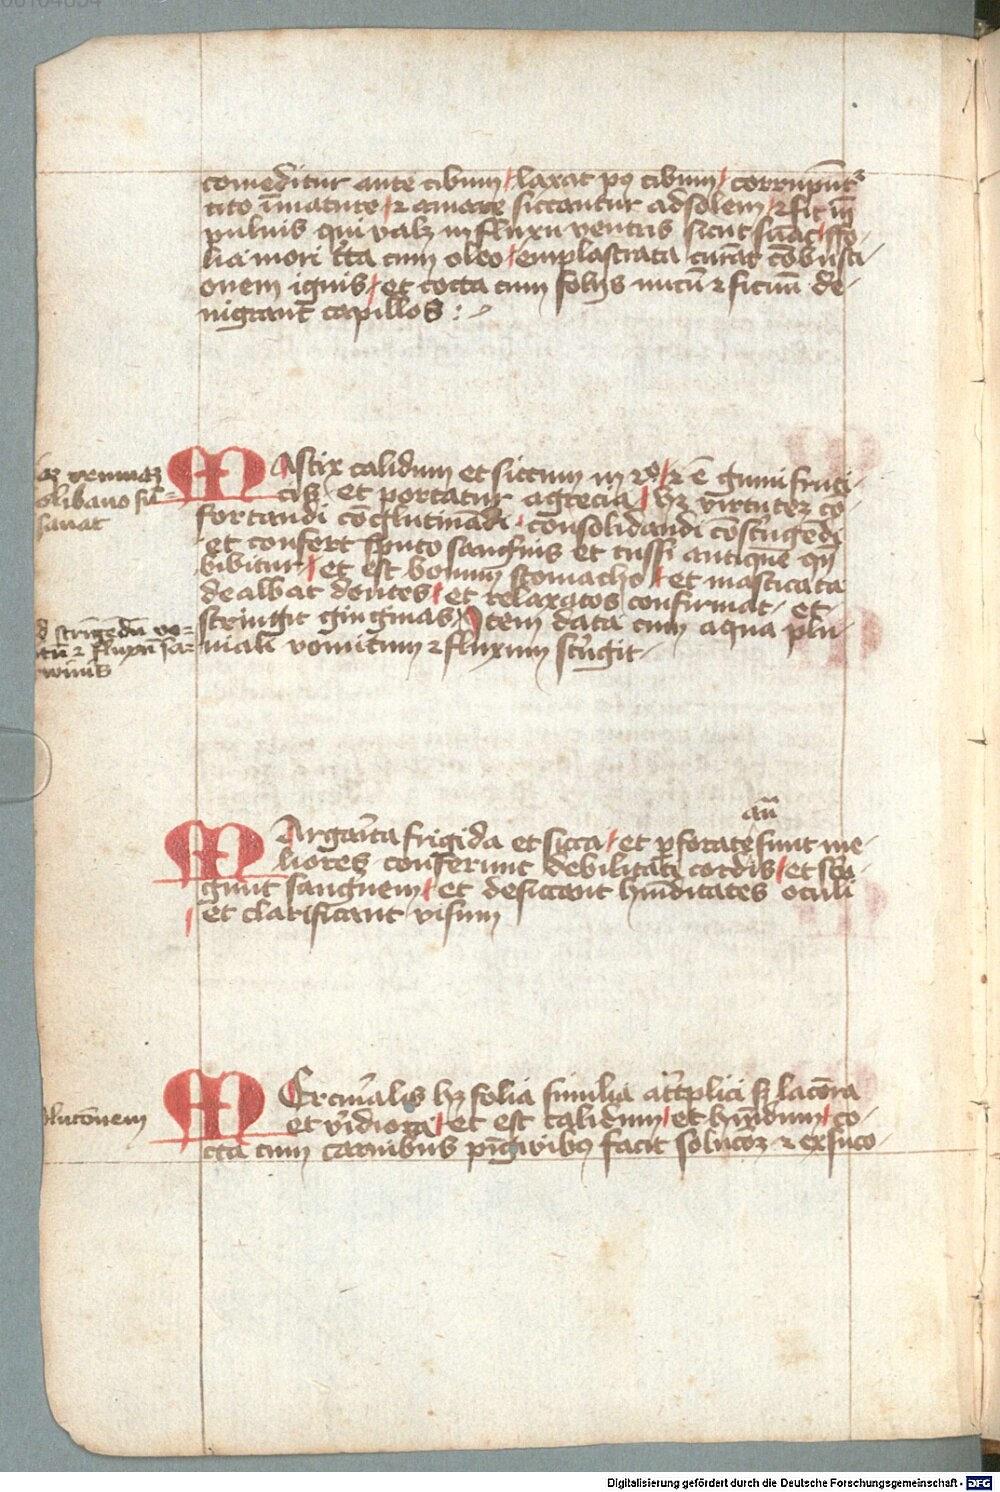 comeditur ante cibum / laxat po cibum / corrūpūt
cito īmature / ⁊ amare siccantur ad solem / ⁊ fit in
puluis qui valꝫ in fluxu ventris sicut sumac / ffo-
lia mori t'ta cum oleo / emplastrata curāt cōbusti-
onem ignis / et cocta cum folijs nucū ⁊ ficuū de-
nigrant capillos :
Mastix calidum et siccum in 2º / ⁊ ē gumi fruti-
cis / et portatur a grecia / hꝫ virtutez co-
fortandi cōglutinādi / consolidandi cōstringēdi
et confert sputo sanguinis et tussi antique qn̄
bibitur / et est bonum stomacho / et masticata
dealbat dentes / et relaxatos confirmat / et
stringit gingiuas / Item data cum aqua plu-
uiali vomitum ⁊ fluxum st'ngit
olibano
sanat
d stringēdū vo-
tū ⁊ fluxū
Margarita frigida et sicca / et pforate sunt me-
aū
liores conferunt debilitati cordis / et st'n-
gunt sanguinem / et desiccant hūiditates oculi
et clarificant visum
Mercurialis hꝫ folia similia at'plici sꝫ lacōra
et v'idiora / et est calidum / et hūidum / co-
cta cum carnibus pīgwibꝰ facit solucoꝫ ⁊ ex suco
olucōnem
Digitalisierung gefördert durch die Deutsche Forschungsgemeinschaft - DFG